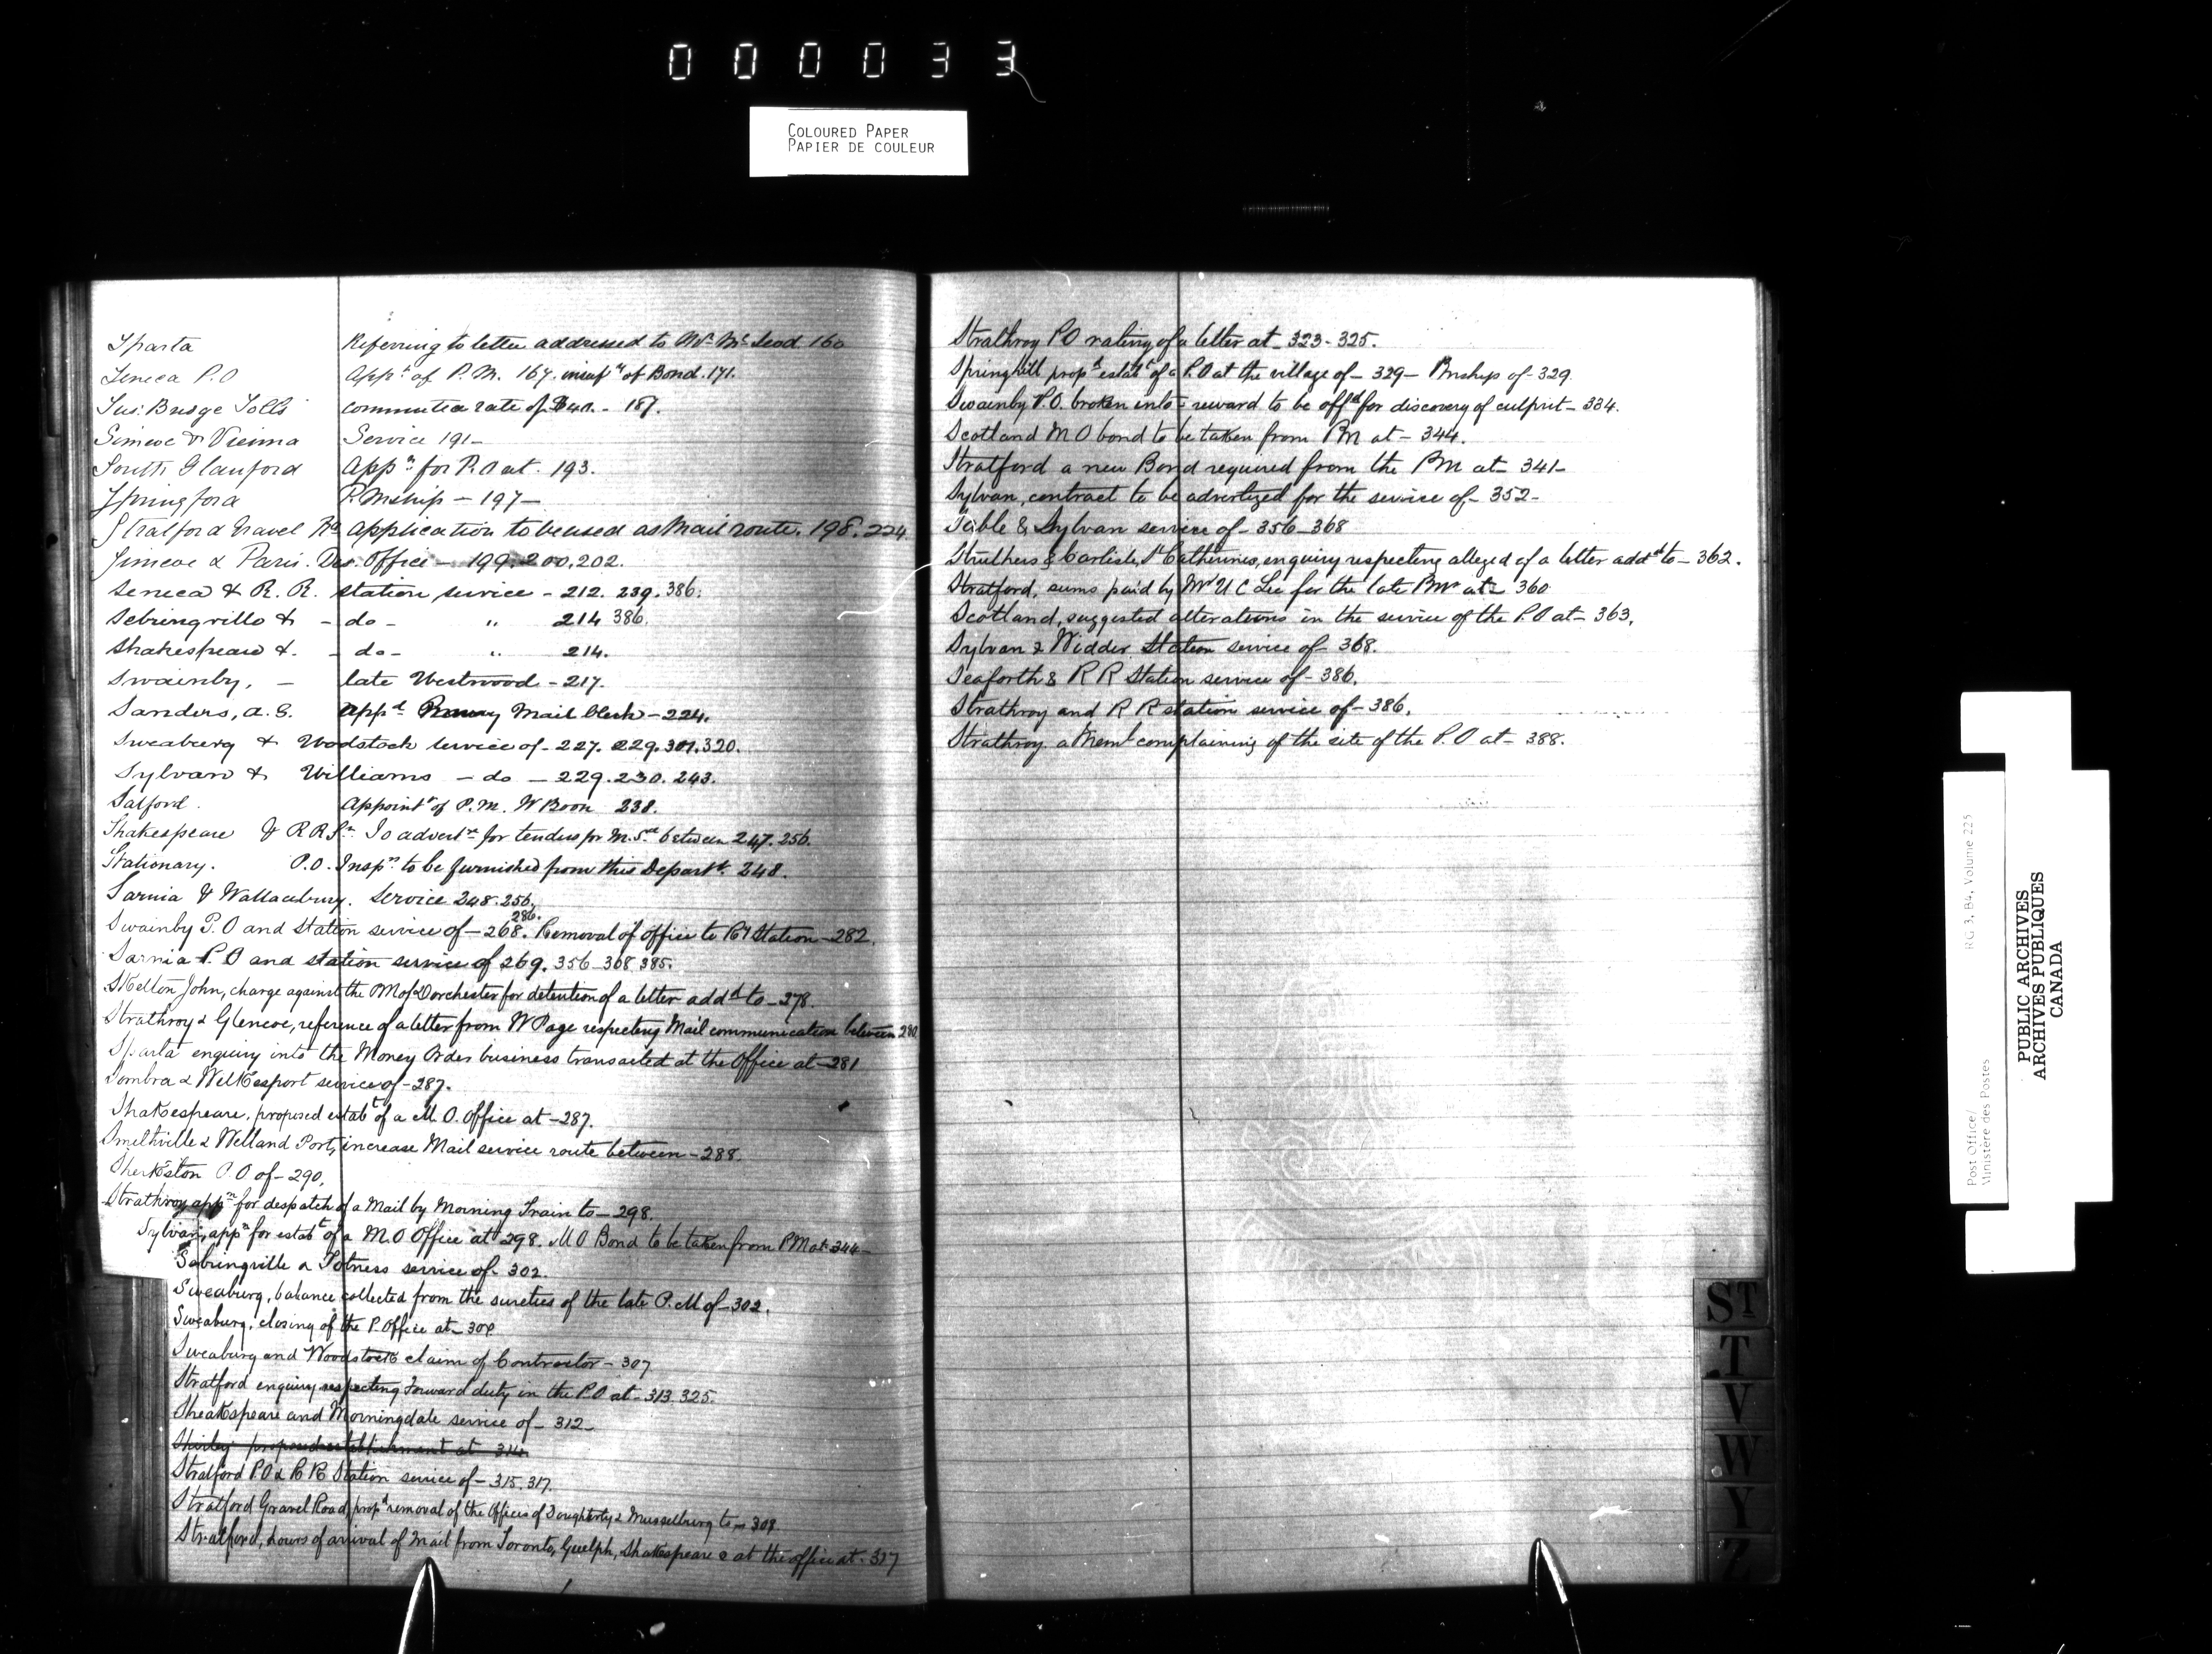 000033
COLOURED PAPER
PAPIER DE COULEUR
Sparta Referring to letter addressed to Mr McLeod 160
Seneca P.O Appt of P.M. 167. insufy of Bond. 171.
Sus. Bridge Tolls commuted rate of $40. - 187.
Simcoe & Vienna Service 191-
South Glanford Appn for P.O at. 193.
Springford P.Mship - 197-
Stratford Gravel Rd application to be used as Mail route. 198. 224
Simcoe & Paris. Des. Office - 199. 200. 202.
Seneca & R. R. station service - 212. 239. 386.
Sebringville & - do - " 214 386.
Shakespeare &. - do - " 214.
Swainby, - late Westwood - 217.
Sanders, A. G. appd Railway Mail Clerk - 224.
Sweaburg & Woodstock service of - 227. 229. 301. 320.
Sylvan & Williams - do - 229. 230. 243.
Salford. Appointt of P.M. W Boon 238.
Shakespeare & R R Sn. To advertse for tenders for M. Sce between 247. 256.
Stationary. P.O. Inspr to be furnished from this Departt. 248.
Sarnia & Wallaceburg. Service 248. 256.
286.
Swainby P.O and station service of - 268. Removal of office to RY Station - 282.
Sarnia P.O and station service of 269. 356 - 368 385.
Skelton John, charge against the PM of Dorchester for detention of a letter addd to - 278.
Strathroy & Glencoe, reference of a letter from W Page respecting Mail communication between 280
Sparta enquiry into the Money Order business transacted at the Office at - 281
Sombra & Wilkesport service of - 287.
Shakespeare, proposed estabt of a M. O. Office at - 287.
Smithville & Welland Port, increase Mail service route between - 288.
Sherkston P.O of - 290.
Strathroy appn for despatch of a Mail by Morning Train to - 298.
Sylvan, appn for estabt of a M.O Office at 298. M O Bond to be taken from PM at 344 -
Sebringville & Totness service of - 302.
Sweaburg, balance collected from the sureties of the late P.M of - 302.
Sweaburg, closing of the P. Office at -
Sweaburg and Woodstock claim of Contractor - 307
Stratford enquiry respecting Forward duty in the P.O at - 313. 325.
Sheakspeare and Morningdale service of - 312 -
Shirley proposed establishment at 314
Stratford P.O & R R Station service of - 315. 317.
Stratford Gravel Road, propd removal of the Offices of Dougherty & Musselburg to - 309
Stratford, hours of arrival of Mail from Toronto, Guelph, Shakespeare & at the office at - 317
Strathroy P.O rating of a letter at - 323 - 325.
Springhill propd estabt of a P.O at the village of - 329 - Pmship of - 329.
Swainby P.O. broken into - reward to be offd for discovery of culprit - 334.
Scotland M O bond to be taken from PM at - 344.
Stratford a new Bond required from the PM at - 341 -
Sylvan, contract to be advertized for the service of - 352 -
Sable & Sylvan service of - 356 - 368
Struthers & Carlisle, St Catherines, enquiry respecting alleged of a letter addd to - 362.
Stratford, sums paid by Mr U C Lee for the late Pmr at - 360
Scotland, suggested alterations in the service of the P.O at - 363.
Sylvan & Widder Station service of - 368.
Seaforth & R R Station service of - 386.
Strathroy and R R station service of - 386.
Strathroy a Meml complaining of the site of the P.O at - 388.
ST
T
V
W
Y
Z
RG 3, B4, Volume 225
Post Office/
Ministère des Postes
PUBLIC ARCHIVES
ARCHIVES PUBLIQUES
CANADA